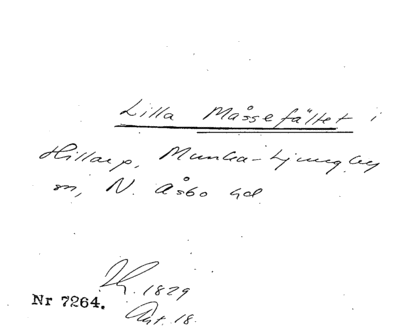 Lilla Måssefältet i
Hillarp, Munka-Ljungby
sn, N. Åsbo hd
1829
Nr 7264.
Akt. 18.